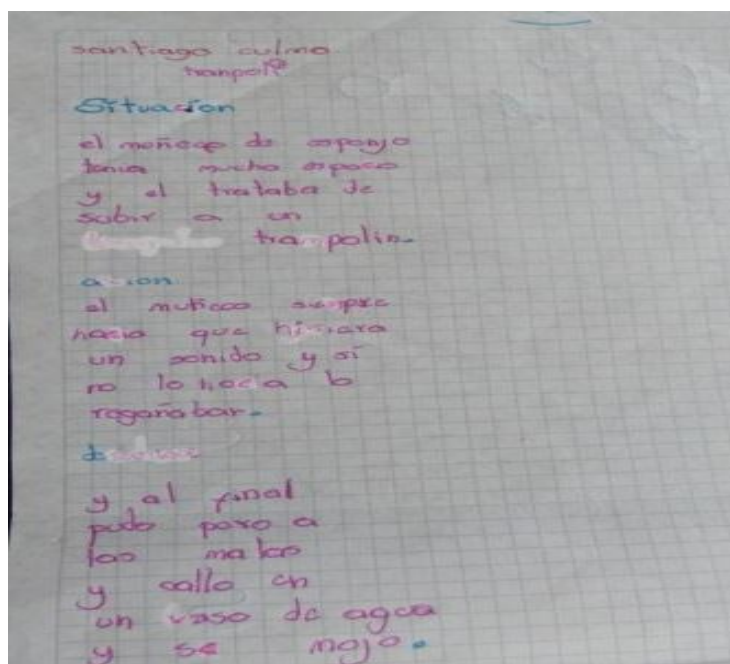 santiago culma
tranpoli
Situacion
el moñeco de esponja
tenia mucho espaco
y el trataba de
subir a un
trampolin.
acion.
el muñeco siempre
hacia que hiciara
un sonido y si
no lo hacia lo
regañabar.
y al final
pudo paro a
las malas
y callo en
un vaso de agua
y se mojo.